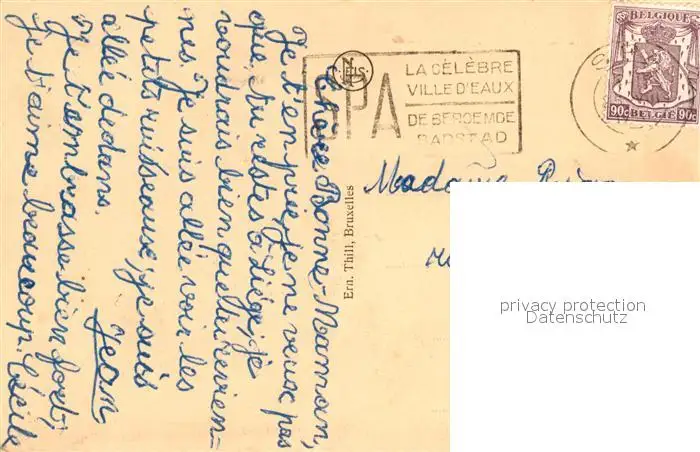 Chère Bonne-Maman,
Je t'en prie, je ne veux pas
que tu restes à Liège, je
voudrais bien que tu revien-
nes. Je suis allée voir les
petits ruisseaux, je suis
allée dedans.
Jean
Je t'embrasse bien fort,
je t'aime beaucoup. Cécile
SPA
LA CÉLÈBRE
VILLE D'EAUX
DE BEROEMDE
BADSTAD
NELS
BELGIQUE
90c BELGIE 90c
Ern. Thill, Bruxelles
Madame
privacy protection
Datenschutz